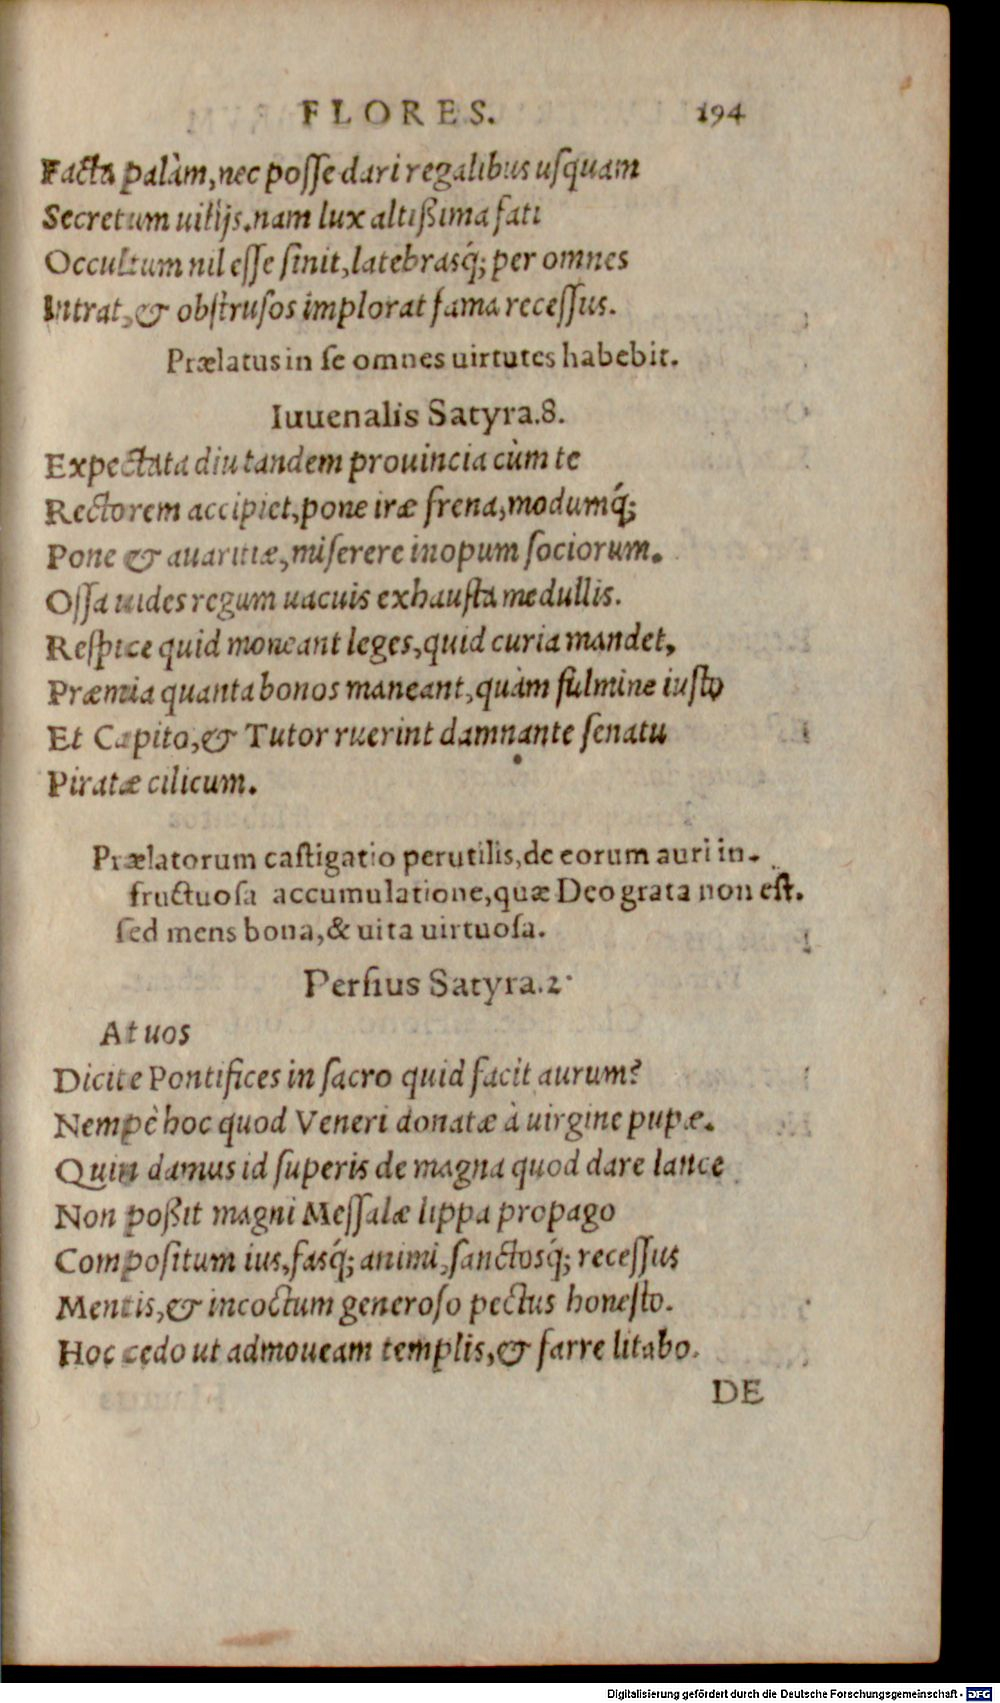 FLORES. 194
Facta palàm, nec posse dari regalibus usquam
Secretum uitijs. nam lux altißima fati
Occultum nil esse sinit, latebrasq́; per omnes
Intrat, & obstrusos implorat fama recessus.
Prælatus in se omnes uirtutes habebit.
Iuuenalis Satyra.8.
Expectata diu tandem prouincia cùm te
Rectorem accipiet, pone iræ frena, modumq́;
Pone & auaritiæ, miserere inopum sociorum.
Ossa uides regum uacuis exhausta medullis.
Respice quid moneant leges, quid curia mandet,
Præmia quanta bonos maneant, quàm fulmine iusto
Et Capito, & Tutor ruerint damnante senatu
Piratæ cilicum.
Prælatorum castigatio perutilis, de eorum auri in-
fructuosa accumulatione, quæ Deo grata non est.
sed mens bona, & uita uirtuosa.
Persius Satyra.2.
At uos
Dicite Pontifices in sacro quid facit aurum?
Nempè hoc quod Veneri donatæ à uirgine pupæ.
Quin damus id superis de magna quod dare lance
Non poßit magni Messalæ lippa propago
Compositum ius, fasq́; animi, sanctosq́; recessus
Mentis, & incoctum generoso pectus honesto.
Hoc cedo ut admoueam templis, & farre litabo.
DE
Digitalisierung gefördert durch die Deutsche Forschungsgemeinschaft - DFG